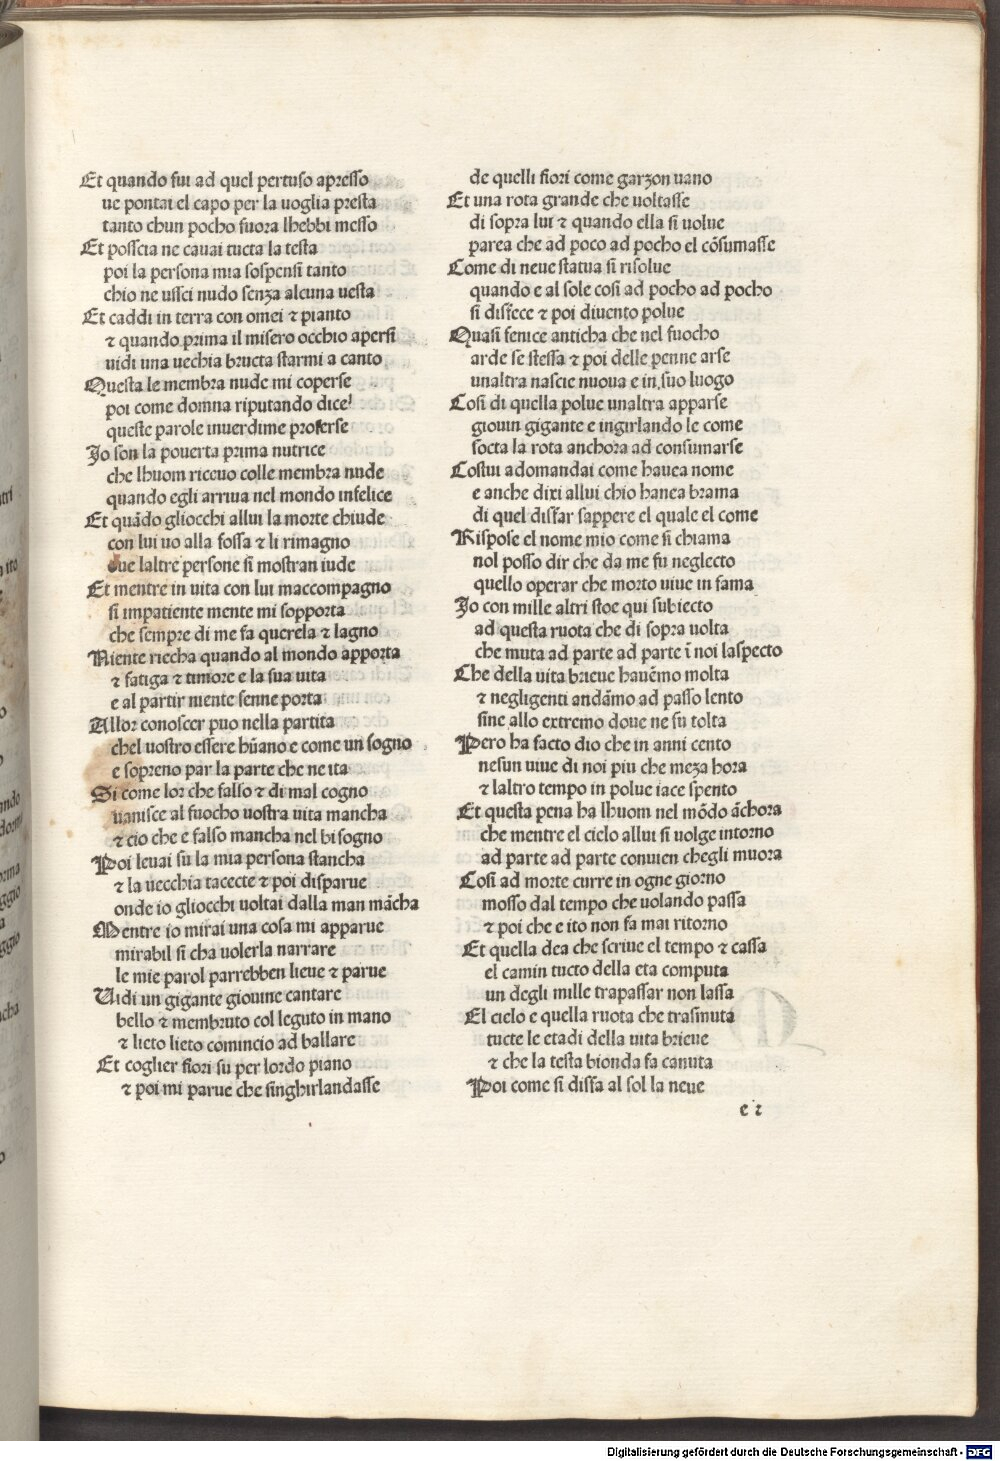 Et quando fui ad quel pertuso apresso
ue pontai el capo per la uoglia presta
tanto chun pocho fuora lhebbi messo
Et posscia ne cauai tucta la testa
poi la persona mia sospensi tanto
chio ne ussci nudo senza alcuna uesta
Et caddi in terra con omei ⁊ pianto
⁊ quando prima il misero occhio apersi
uidi una uechia bructa starmi a canto
Questa le membra nude mi coperse
poi come domna riputando dice
queste parole inuerdime proferse
Io son la pouerta prima nutrice
che lhuom riceuo colle membra nude
quando egli arriua nel mondo infelice
Et quādo gliocchi allui la morte chiude
con lui uo alla fossa ⁊ li rimagno
oue laltre persone si mostran iude
Et mentre in uita con lui maccompagno
si impatiente mente mi sopporta
che sempre di me fa querela ⁊ lagno
Niente riecha quando al mondo apporta
⁊ fatiga ⁊ timore e la sua uita
e al partir niente senne porta
Allor conoscer puo nella partita
chel uostro essere hūano e come un sogno
e sopreno par la parte che ne ita
Si come lor che falso ⁊ di mal cogno
uanisce al fuocho uostra uita mancha
⁊ cio che e falso mancha nel bisogno
Poi leuai su la mia persona stancha
⁊ la uecchia tacecte ⁊ poi disparue
onde io gliocchi uoltai dalla man māncha
Mentre io mirai una cosa mi apparue
mirabil si cha uolerla narrare
le mie parol parrebben lieue ⁊ parue
Uidi un gigante giouine cantare
bello ⁊ membruto col leguto in mano
⁊ lieto lieto comincio ad ballare
Et coglier fiori su per lordo piano
⁊ poi mi parue che singhirlandasse
de quelli fiori come garzon uano
Et una rota grande che uoltasse
di sopra lui ⁊ quando ella si uolue
parea che ad poco ad pocho el cōsumasse
Come di neue statua si risolue
quando e al sole cosi ad pocho ad pocho
si disfece ⁊ poi diuento polue
Quasi fenice anticha che nel fuocho
arde se stessa ⁊ poi delle penne arse
unaltra nascie nuoua e in suo luogo
Cosi di quella polue unaltra apparse
giouin gigante e ingirlando le come
socta la rota anchora ad consumarse
Costui adomandai come hauea nome
e anche dixi allui chio hauea brama
di quel disfar sappere el quale el come
Rispose el nome mio come si chiama
nol posso dir che da me fu neglecto
quello operar che morto uiue in fama
Io con mille altri stoe qui subiecto
ad questa ruota che di sopra uolta
che muta ad parte ad parte ī noi laspecto
Che della uita brieue hauēmo molta
⁊ negligenti andāmo ad passo lento
sine allo extremo doue ne fu tolta
Pero ha facto dio che in anni cento
nesun uiue di noi piu che meza hora
⁊ laltro tempo in polue iace spento
Et questa pena ha lhuom nel mōdo āchora
che mentre el cielo allui si uolge intorno
ad parte ad parte conuien chegli muora
Cosi ad morte curre in ogne giorno
mosso dal tempo che uolando passa
⁊ poi che e ito non fa mai ritorno
Et quella dea che scriue el tempo ⁊ cassa
el camin tucto della eta computa
un degli mille trapassar non lassa
El cielo e quella ruota che trasmuta
tucte le etadi della uita brieue
⁊ che la testa bionda fa canuta
Poi come si disfa al sol la neue
e 2
Digitalisierung gefördert durch die Deutsche Forschungsgemeinschaft - DFG